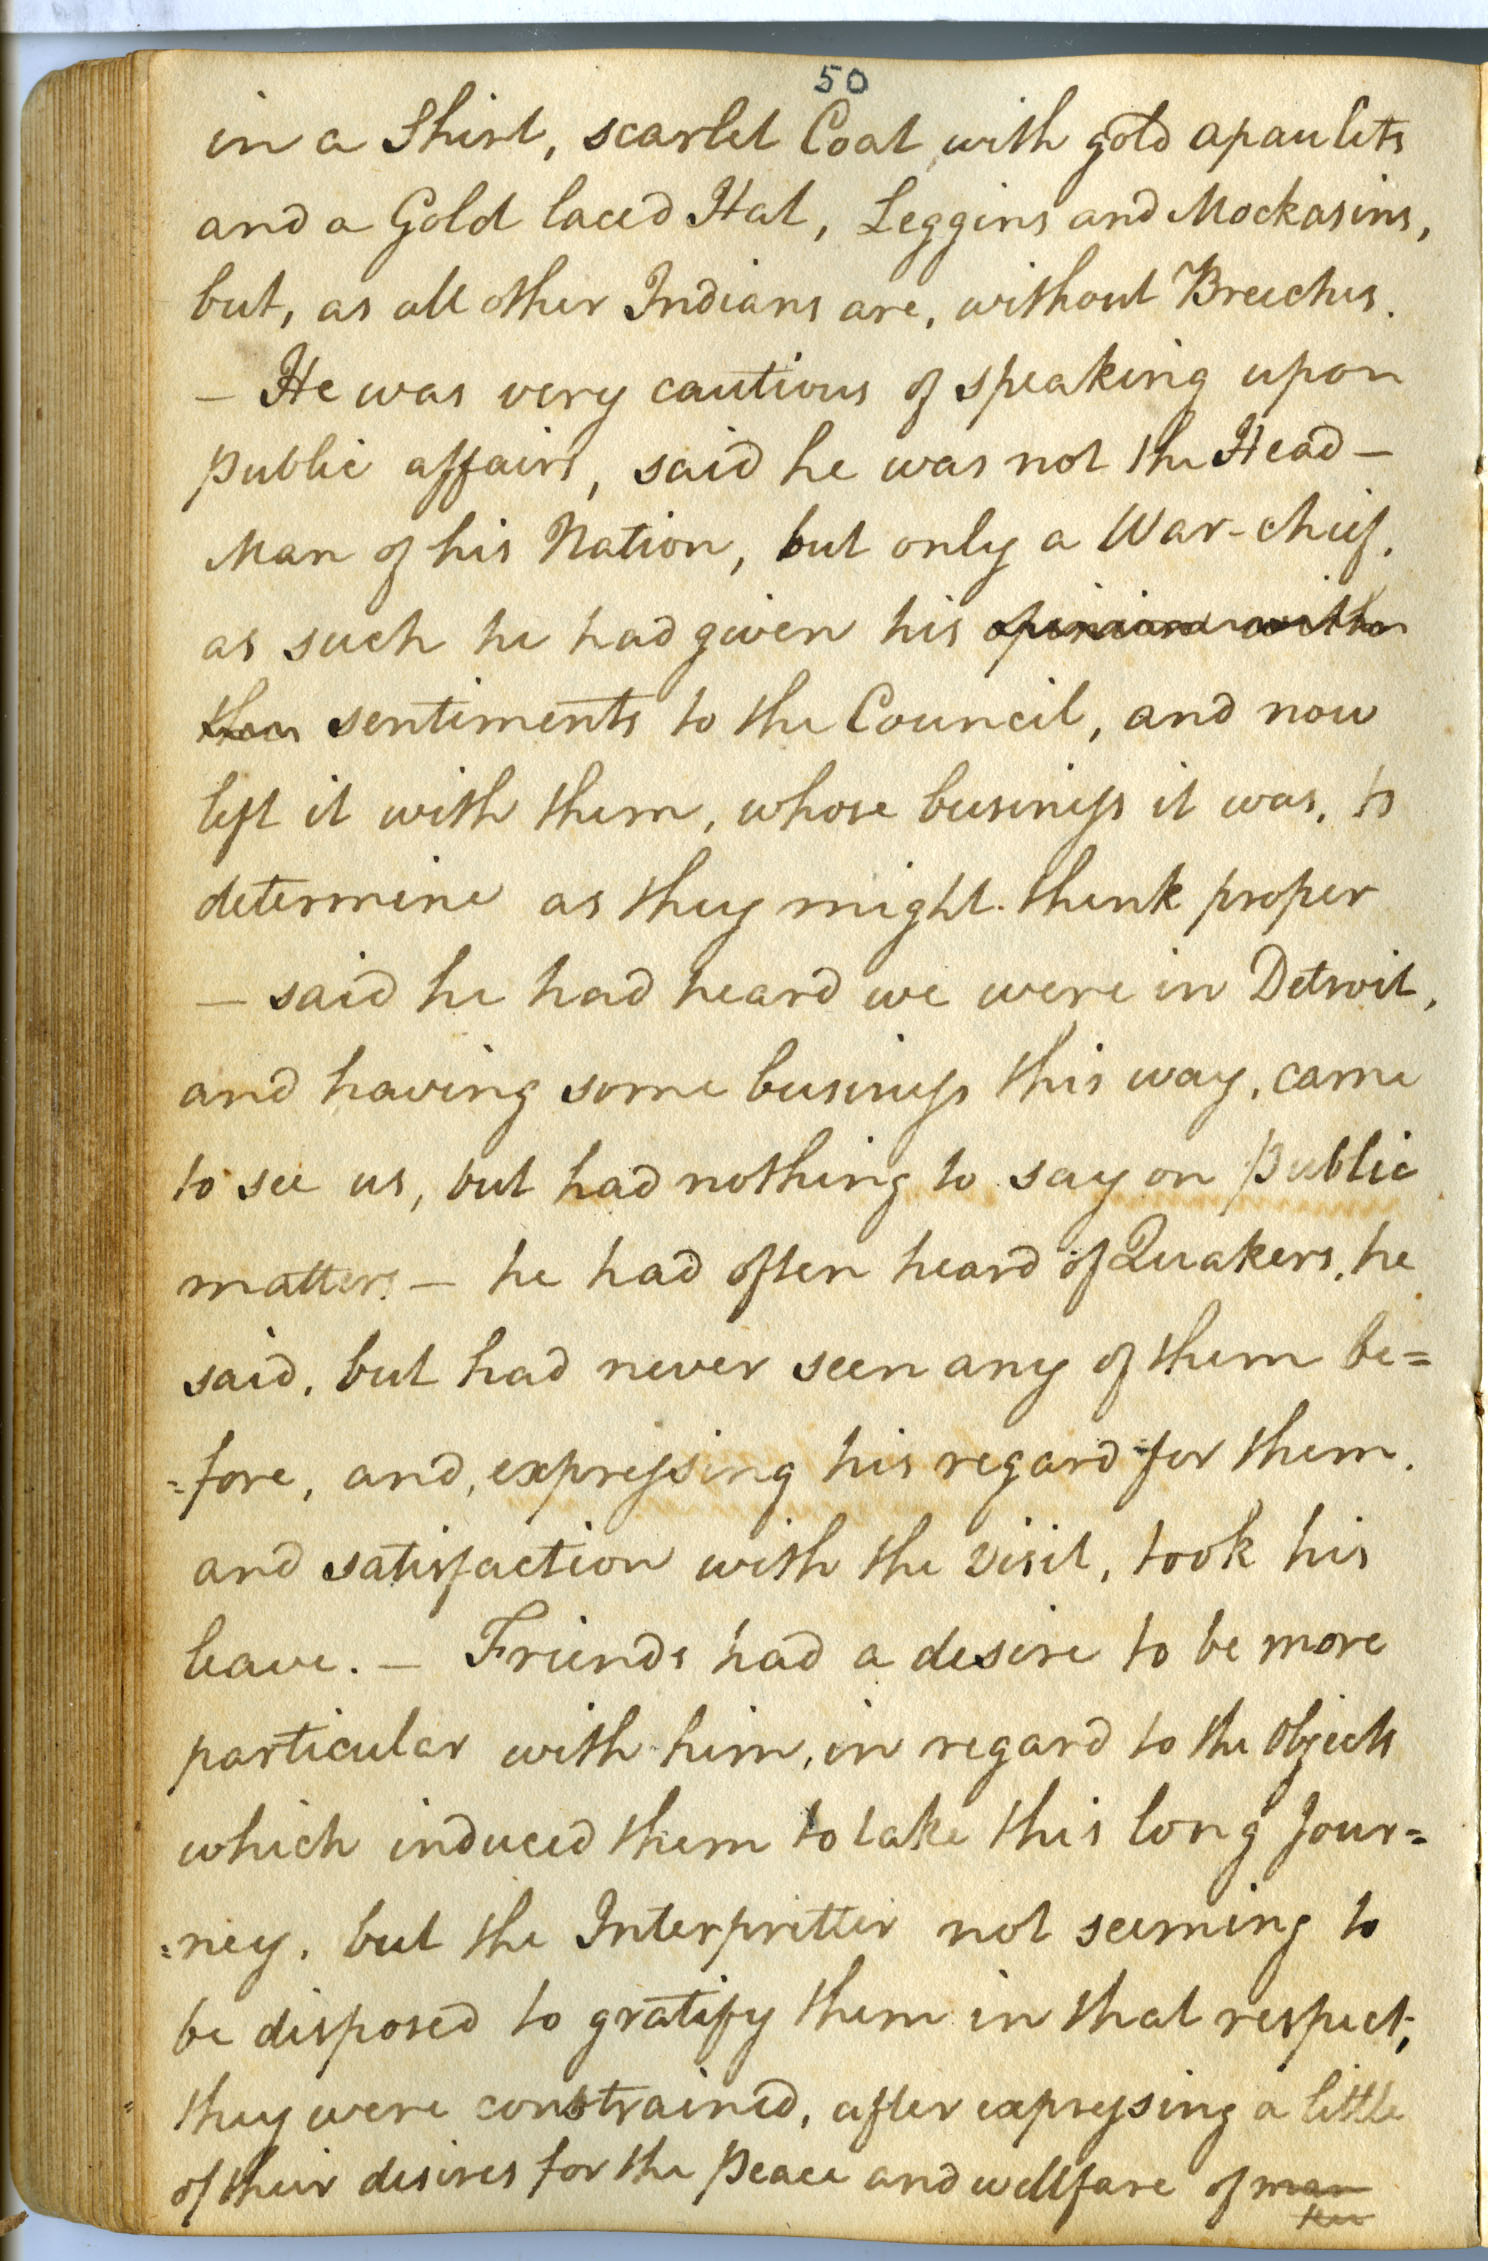 50
in a Shirt, scarlet Coat with gold apaulets
and a Gold laced Hat, Leggins and Mockasins,
but, as all other Indians are, without Breeches.
– He was very cautious of speaking upon
public affairs, said he was not the Head –
Man of his Nation, but only a War-chief.
as such he had given his opinion with
them sentiments to the Council, and now
left it with them, whose business it was, to
determine as they might think proper
– said he had heard we were in Detroit,
and having some business this way, came
to see us, but had nothing to say on Public
matters – he had often heard of Quakers, he
said, but had never seen any of them be=
=fore, and, expressing his regard for them.
and satisfaction with the visit, took his
leave. – Friends had a desire to be more
particular with him, in regard to the Objects
which induced them to take this long Jour=
=ney, but the Interpritter not seeming to
be disposed to gratify them in that respect,
they were constrained, after expressing a little
of their desires for the Peace and wellfare of man